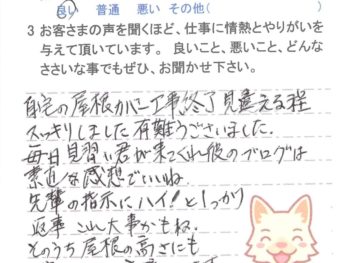 良い 普通 悪い その他(
3 お客さまの声を聞くほど、仕事に情熱とやりがいを
与えて頂いています。良いこと、悪いこと、どんな
ささいな事でもぜひ、お聞かせ下さい。
自宅の屋根カバー工事終了見違える程
スッキリしました有難うございました.
毎日見習い君が来てくれ彼のブログは
素直な感想でいいね.
先輩の指示にハイ!としっかり
返事 これ大事かもね.
そのうち屋根の高さにも